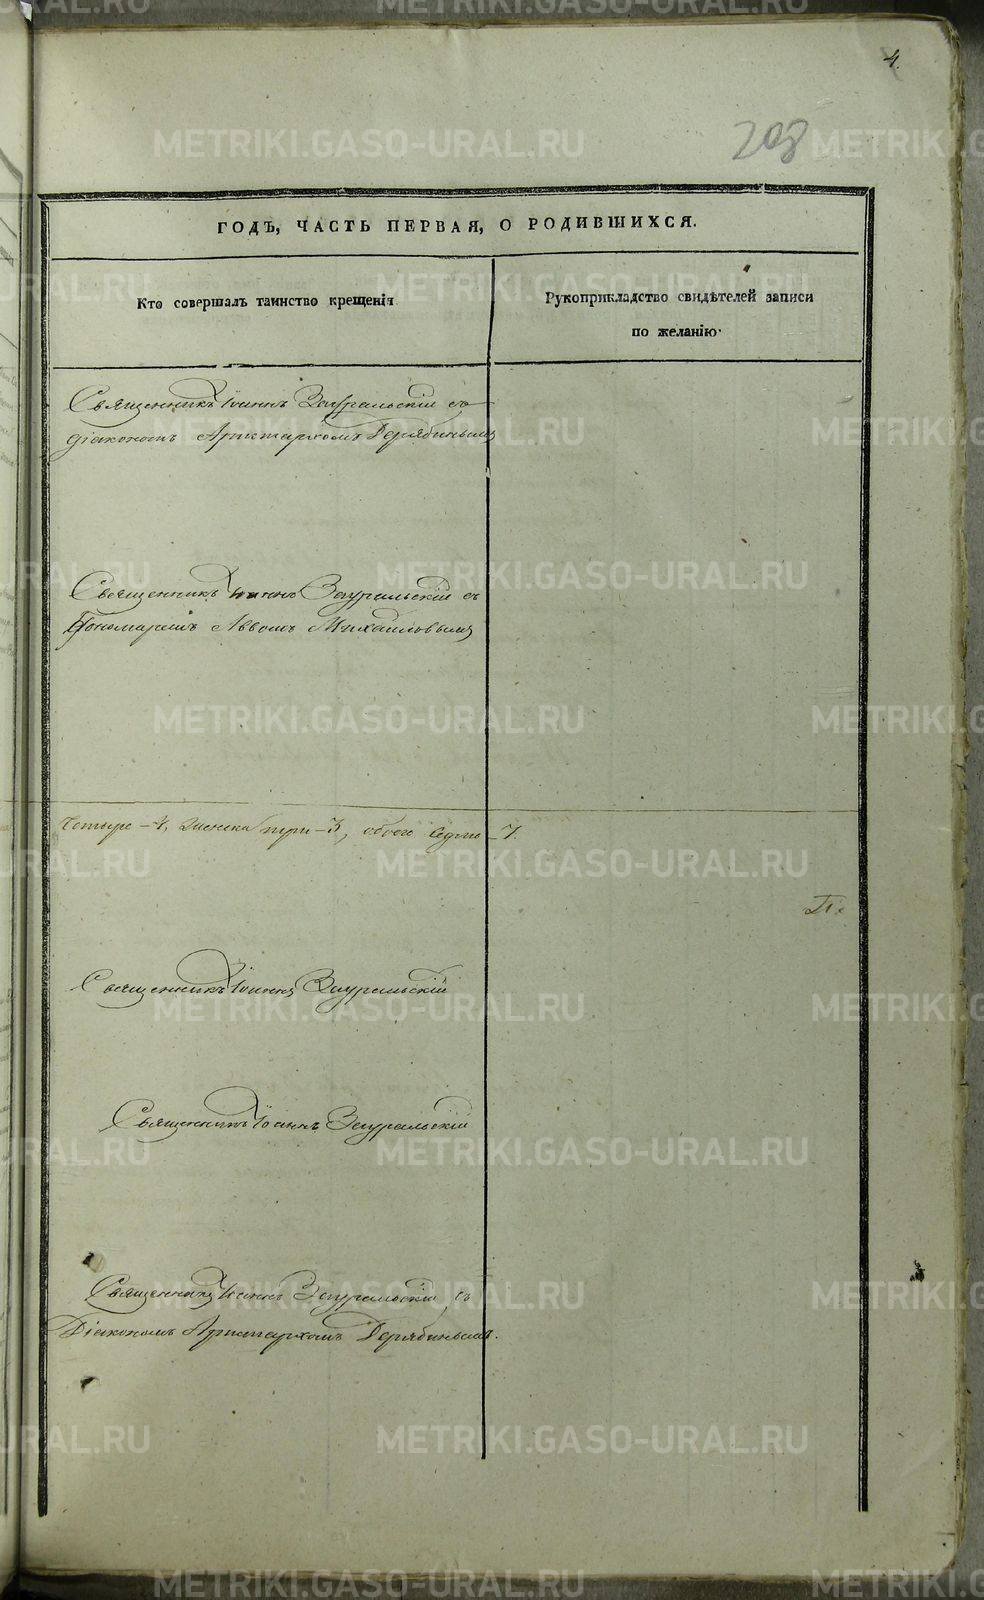 4.
208
ГОДЪ, ЧАСТЬ ПЕРВАЯ, О РОДИВШИХСЯ.
Кто совершалъ таинство крещенія
Рукоприкладство свидѣтелей записи
по желанію·
Священникъ Іоаннъ Зауральскій съ
діакономъ Аристархомъ Дерябинымъ
Священникъ Іоаннъ Зауральскій съ
Пономаремъ Аввомъ Михайловымъ
четыре – 4, женска три – 3, обоего седмь – 7.
Священникъ Іоаннъ Зауральскій
Священникъ Іоаннъ Зауральскій
Священникъ Іоаннъ Зауральскій съ
Діакономъ Аристархомъ Дерябинымъ.
METRIKI.GASO-URAL.RU